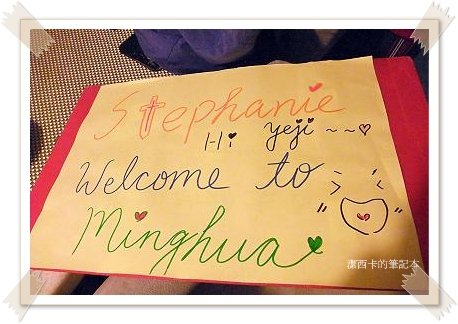 Stephanie
Hi yeji ~~♡
Welcome to
Minghua
潔西卡的筆記本